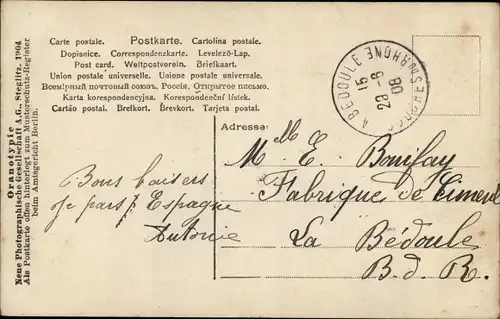 Carte postale. Postkarte. Cartolina postale.
Dopisnice. Correspondenzkarte. Levelező-Lap.
Post card. Weltpostverein. Briefkaart.
Union postale universelle. Unione postale universale.
Всемірный почтовый союзъ. Россія. Открытое письмо.
Karta korespondencyjna. Korespondenční lístek.
Cartão postal. Brefkort. Brevkort. Tarjeta postal.
LA BEDOULE BOUCHES DU RHONE
15
23-8
08
Adresse:
M M. E. Bonifay
Fabrique de Ciment
La Bédoule
B. d. R.
Bons baisers
je pars Espagne
Antonie
Oranotypie
Neue Photographische Gesellschaft A.G., Steglitz. 1904
Als Postkarte offen hinterlegt zum Musterschutz-Register
beim Amtsgericht Berlin.